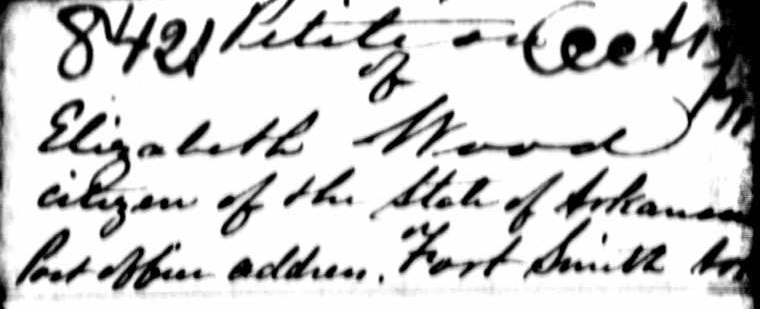 8421 Petition
of
Elizabeth Wood
citizen of the State of Arkansas
Post office address. Fort Smith